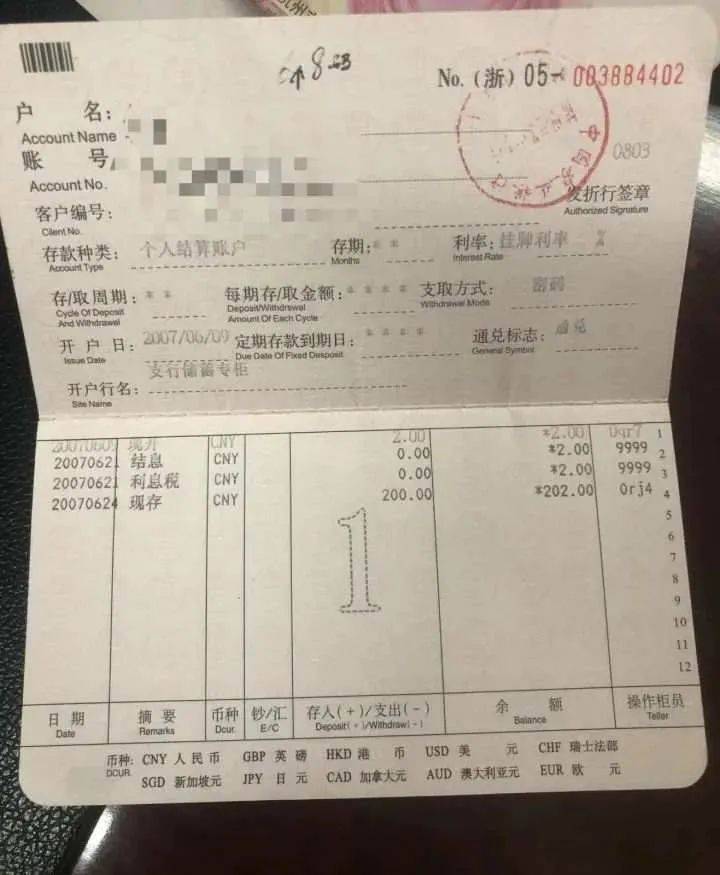 No. (浙) 05- 003884402
户 名:
Account Name
账 号
Account No.
0803
客户编号:
Client No.
发折行签章
Authorized Signature
存款种类: 个人结算账户 存期: * * 利率: 挂牌利率 %
Account Type Months Interest Rate
存/取周期: * * 每期存/取金额: * * * * 支取方式: 密码
Cycle Of Deposit And Withdrawal Deposit/Withdrawal Amount Of Each Cycle Withdrawal Mode
开 户 日: 2007/06/09 定期存款到期日: * * * * 通兑标志: 通兑
Issue Date Due Date Of Fixed Desposit General Symbol
开户行名: 支行储蓄专柜
Site Name
20070609 现开 CNY 2.00 *2.00 0qr7 1
20070621 结息 CNY 0.00 *2.00 9999 2
20070621 利息税 CNY 0.00 *2.00 9999 3
20070624 现存 CNY 200.00 *202.00 0rj4 4
5
6
7
8
9
10
11
12
1
日 期 摘 要 币种 钞/汇 存入(+)/支出(-) 余 额 操作柜员
Date Remarks Dcur. E/C Deposit(+)/Withdraw(-) Balance Teller
币种: CNY 人 民 币 GBP 英 镑 HKD 港 币 USD 美 元 CHF 瑞士法郎
DCUR. SGD 新加坡元 JPY 日 元 CAD 加拿大元 AUD 澳大利亚元 EUR 欧 元